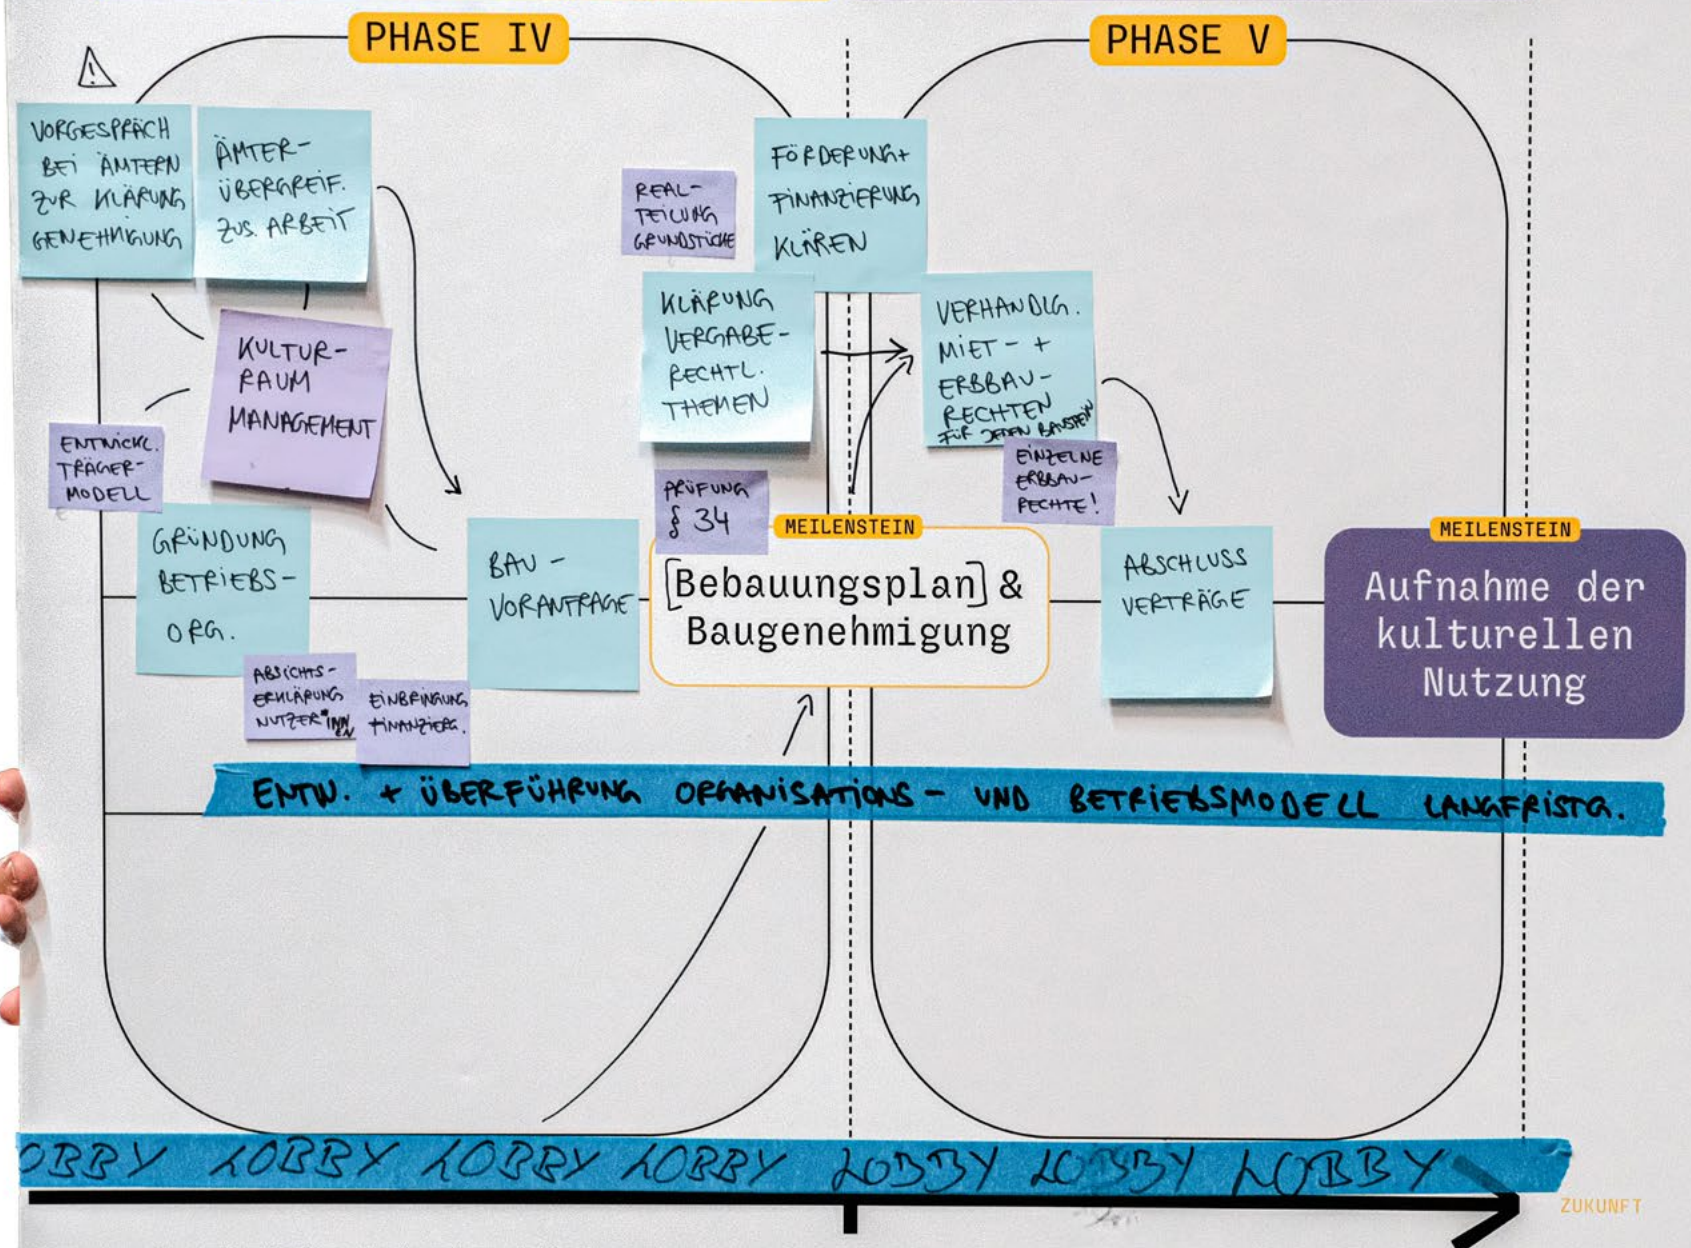 PHASE IV
PHASE V
VORGESPRÄCH
BEI ÄMTERN
ZUR KLÄRUNG
GENEHMIGUNG
ÄMTER-
ÜBERGREIF.
ZUS. ARBEIT
KULTUR-
RAUM
MANAGEMENT
ENTWICKL.
TRÄGER-
MODELL
GRÜNDUNG
BETRIEBS-
ORG.
ABSICHTS-
ERKLÄRUNG
NUTZER*INN
EN
EINBRINGUNG
FINANZIERG.
BAU-
VORANFRAGE
REAL-
TEILUNG
GRUNDSTÜCKE
FÖRDERUNG+
FINANZIERUNG
KLÄREN
KLÄRUNG
VERGABE-
RECHTL.
THEMEN
PRÜFUNG
§ 34
MEILENSTEIN
[Bebauungsplan] &
Baugenehmigung
VERHANDLG.
MIET- +
ERBBAU-
RECHTEN
FÜR JEDEN BAUSTEIN
EINZELNE
ERBBAU-
RECHTE!
ABSCHLUSS
VERTRÄGE
MEILENSTEIN
Aufnahme der
kulturellen
Nutzung
ENTW. + ÜBERFÜHRUNG ORGANISATIONS- UND BETRIEBSMODELL LANGFRISTG.
OBBY LOBBY LOBBY LOBBY LOBBY LOBBY LOBBY
ZUKUNFT